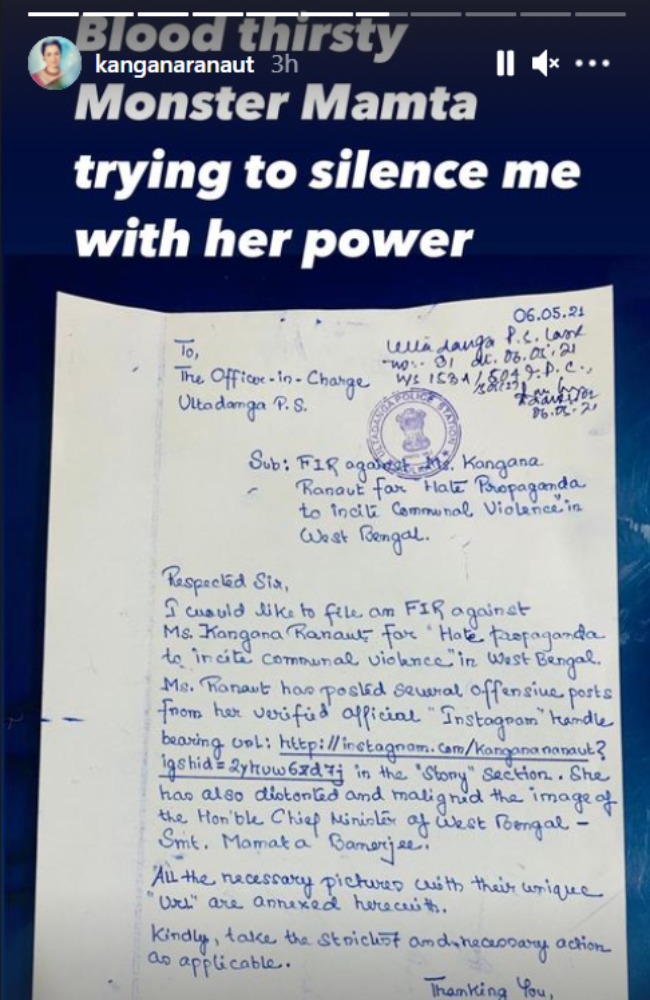 Blood thirsty
kanganaranaut 3h
Monster Mamta
trying to silence me
with her power
06.05.21
To,
The Officer-in-Charge
Ultadanga P.S.
Ulta danga P.S. Case
no:- 81 dt. 06.05.21
U/S 153A/504 I.P.C.,
06.05.21
ULTADANGA POLICE STATION
Sub: FIR against Ms. Kangana
Ranaut for "Hate Propaganda
to incite Communal Violence" in
West Bengal.
Respected Sir,
I would like to file an FIR against
Ms. Kangana Ranaut for "Hate propaganda
to incite communal violence" in West Bengal.
Ms. Ranaut has posted several offensive posts
from her verified official "Instagram" handle
bearing url: http://instagram.com/kanganaranaut?
igshid=2yhuw6zd7j in the "Story" section. She
has also distorted and maligned the image of
the Hon'ble Chief Minister of West Bengal –
Smt. Mamata Banerjee.
All the necessary pictures with their unique
"Url" are annexed herewith.
Kindly, take the strictest and necessary action
as applicable.
Thanking You,